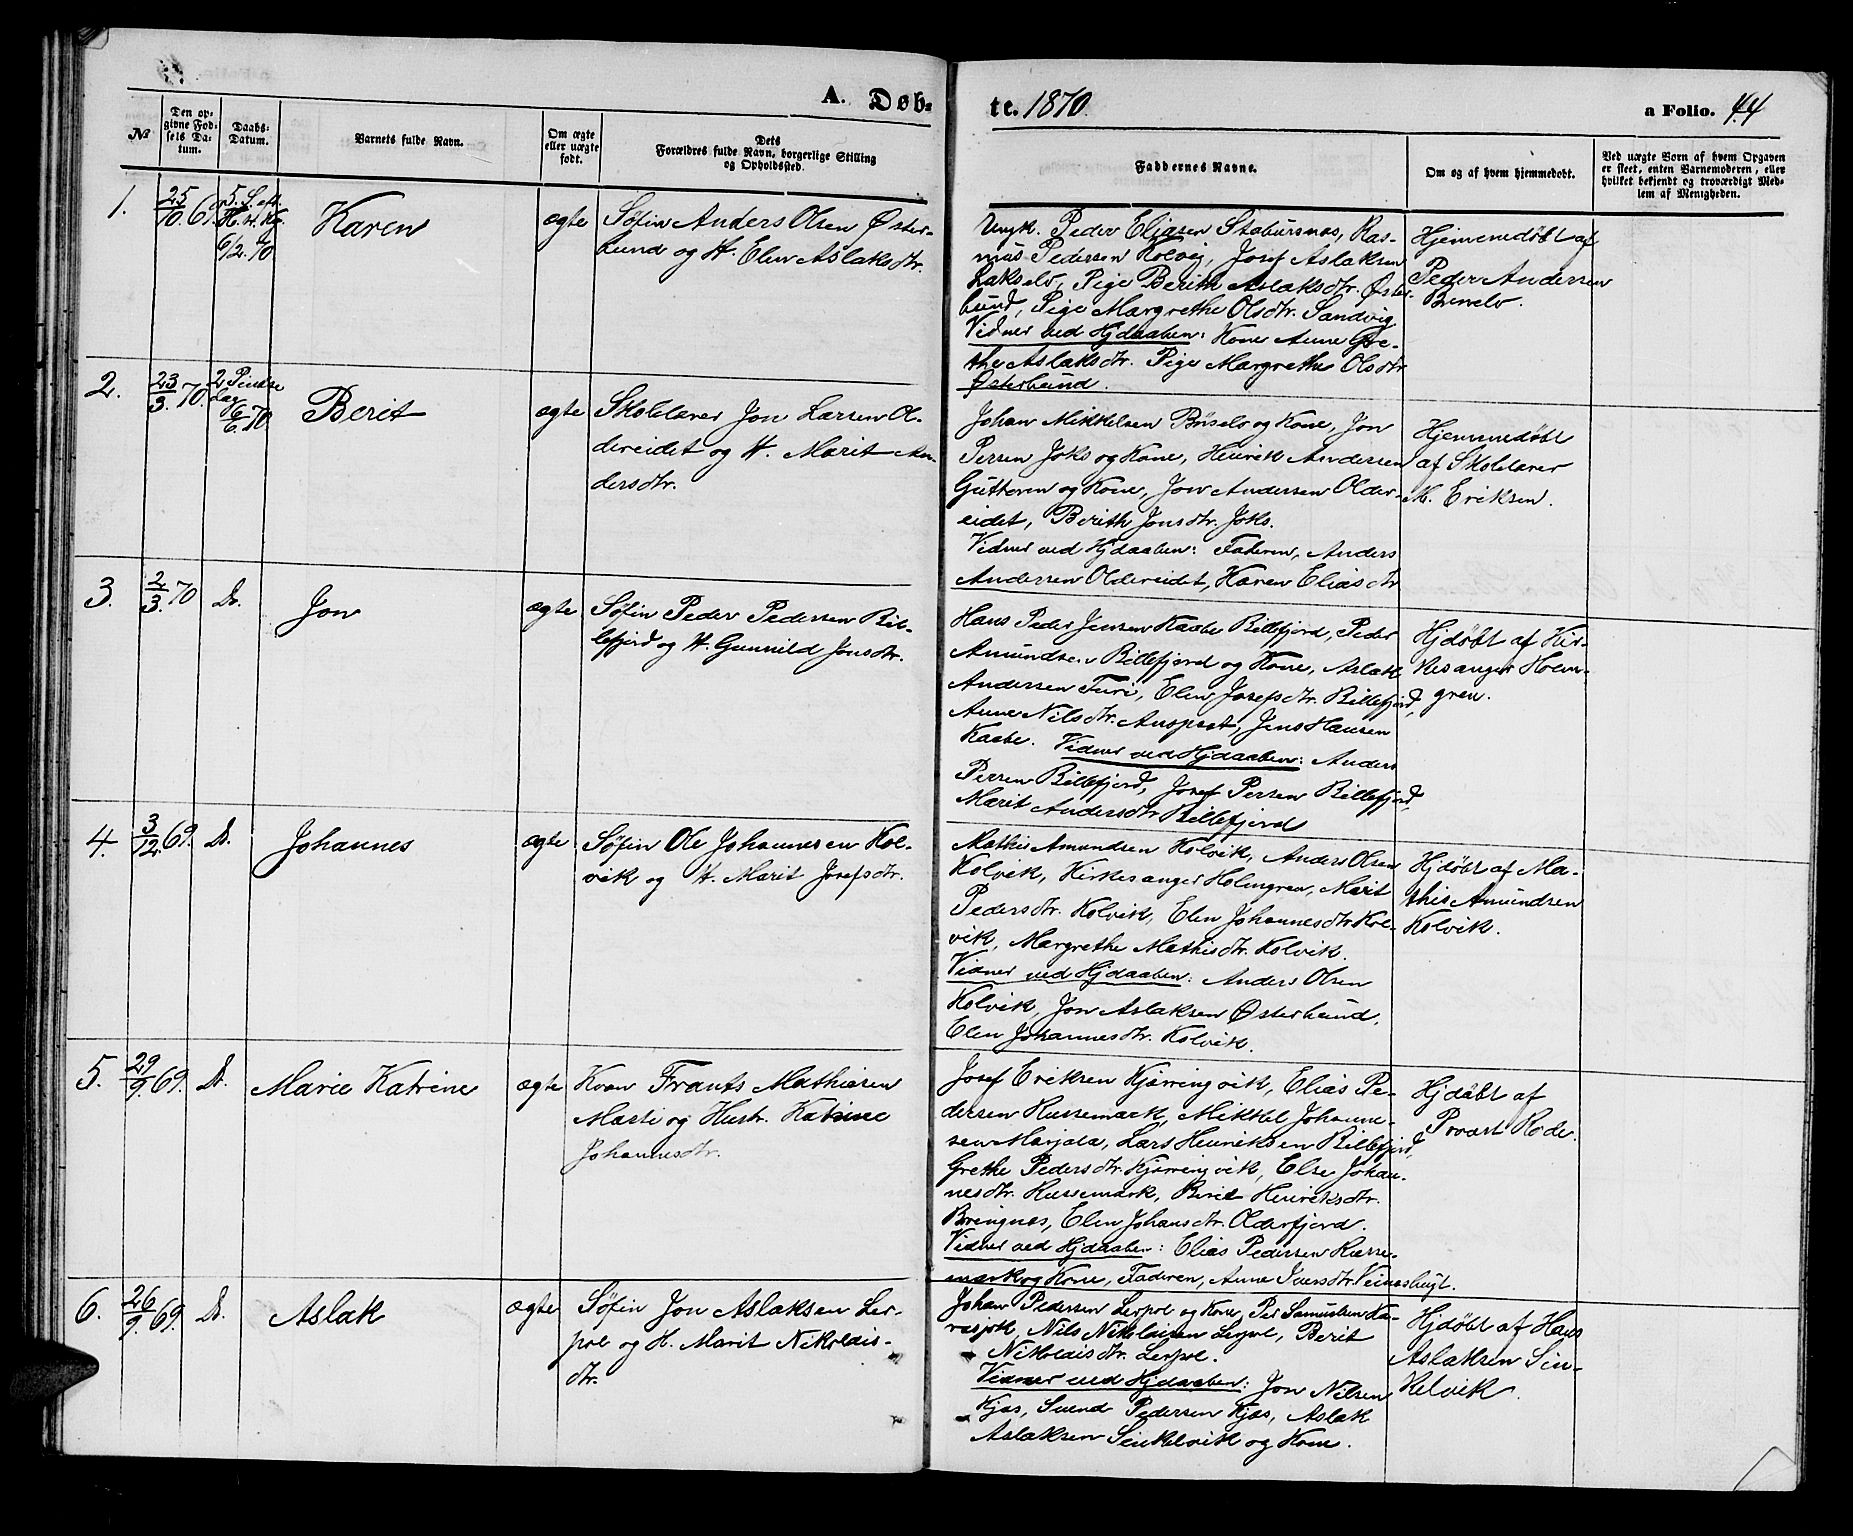 A. Døb-
te. 1870.
a Folio. 44
No
Den op-
givne Fød-
sels Da-
tum.
Daabs-
Datum.
Varnets fulde Navn.
Om ægte
eller uægte
født.
Dets
Forældres fulde Navn, borgerlige Stilling
og Opholdssted.
Faddernes Navne.
Om og af hvem hjemmedøbt.
Ved uægte Børn af hvem Opgaven
er skeet, enten Barnemoderen, eller
hvilket bekjendt og troværdigt Med-
lem af Menigheden.
1.
25/10 69
5. S. eft.
H. 3. Kg.
6/2 70
Karen
ægte
Søfin Anders Olsen Øster-
bund og H. Elen Aslaksdtr.
Ungk. Peder Eliasen Stabursnes, Ras-
mus Pedersen Kolvig, Josef Aslaksen
Lakselv, Pige Berith Aslaksdtr. Øster-
bund, Pige Margrethe Olsdtr. Sandvig
Vidner ved Hjdaaben: Kone Anne Gre-
the Aslaksdtr. Pige Margrethe Olsdtr
Østerbund.
Hjemmedøbt af
Peder Andersen
Brenelv.
2.
23/3 70.
2 Pindse
dag
6/6 70
Berit
ægte
Skolelærer Jon Larsen Ol-
dereidet og H. Marit An-
dersdtr.
Johan Mikkelsen Børselv og Kone, Jon
Persen Joks og Kone, Henrik Andersen
Gutteren og Kone, Jon Andersen Older-
eidet, Berith Jonsdtr. Joks.
Vidner ved Hjdaaben: Faderen, Anders
Andersen Oldereidet, Karen Eliasdtr
Hjemmedøbt
af Skolelærer
M. Eriksen.
3.
2/3 70
Do.
Jon
ægte
Søfin Peder Pedersen Bil-
lefjord og H. Gunnild Jonsdtr.
Hans Peder Jensen Kaabe Billefjord, Peder
Amundsen Billefjord og Kone, Aslak
Andersen Turi, Elen Josefsdtr. Billefjord,
Anne Nilsdtr. Auopsat, Jens Hansen
Kaabe. Vidner ved Hjdaaben: Anders
Persen Billefjord, Josef Persen Billefjord,
Marit Andersdtr Billefjord
Hjdøbt af Kir-
kesanger Holm-
gren.
4.
3/12 69.
Do.
Johannes
ægte
Søfin Ole Johannesen Kol-
vik og H. Marit Josefsdtr.
Mathis Amundsen Kolvik, Anders Olsen
Kolvik, Kirkesanger Holmgren, Marit
Pedersdtr. Kolvik, Elen Johannesdtr Kol-
vik, Margrethe Mathisdtr. Kolvik.
Vidner ved Hjdaaben: Anders Olsen
Kolvik, Jon Aslaksen Østerbund,
Elen Johannesdtr. Kolvik.
Hjdøbt af Ma-
this Amundsen
Kolvik.
5.
29/9 69.
Do.
Marie Katrine
ægte
Kvæn Frants Mathiesen
Marti og Hustr. Katrine
Johannesdtr.
Josef Eriksen Kjærringvik, Elias Pe-
dersen Russemark, Mikkel Johanne-
sen Marjala, Lars Henriksen Billefjord,
Grethe Pedersdtr. Kjærringvik, Else Johan-
nesdtr. Russemark, Berit Henriksdtr.
Bringnes, Elen Johansdtr. Olderfjord.
Vidner ved Hjdaaben: Elias Pedersen Russe-
mark og Kone, Faderen, Anne Iversdtr.
Hjdøbt af
Provst Rode.
6.
26/9 69.
Do.
Aslak
ægte
Søfin Jon Aslaksen Ler-
pol og H. Marit Nikolais-
dtr.
Johan Pedersen Lerpol og Kone, Per Samuelsen Ka-
rasjok, Nils Nikolaisen Lerpol, Berit
Nikolaisdtr. Lerpol.
Vidner ved Hjdaaben: Jon Nilsen
Kjæs, Svend Pedersen Kjæs, Aslak
Aslaksen Seinkelvik og Kone.
Hjdøbt af Hans
Aslaksen Sin-
kelvik.